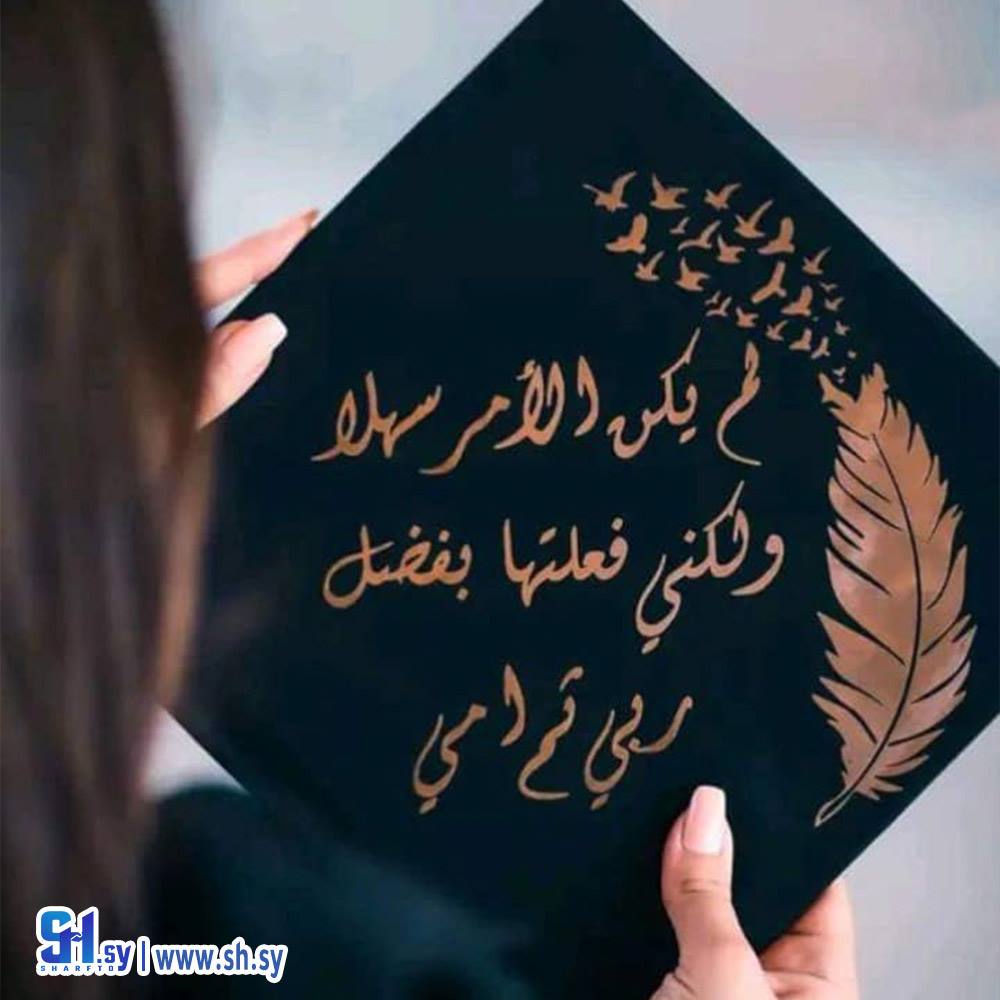 لم يكن الأمر سهلا
ولكني فعلتها بفضل
ربي ثم امي
SH.sy | www.sh.sy
SHARFTO